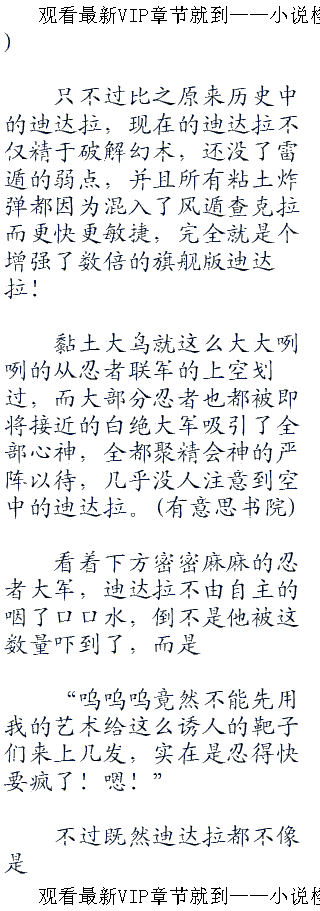 观看最新VIP章节就到——小说楼
)
只不过比之原来历史中
的迪达拉，现在的迪达拉不
仅精于破解幻术，还没了雷
遁的弱点，并且所有粘土炸
弹都因为混入了风遁查克拉
而更快更敏捷，完全就是个
增强了数倍的旗舰版迪达
拉！
黏土大鸟就这么大大咧
咧的从忍者联军的上空划
过，而大部分忍者也都被即
将接近的白绝大军吸引了全
部心神，全都聚精会神的严
阵以待，几乎没人注意到空
中的迪达拉。(有意思书院)
看着下方密密麻麻的忍
者大军，迪达拉不由自主的
咽了口口水，倒不是他被这
数量吓到了，而是
“呜呜呜竟然不能先用
我的艺术给这么诱人的靶子
们来上几发，实在是忍得快
要疯了！嗯！”
不过既然迪达拉都不像
是
观看最新VIP章节就到——小说楼